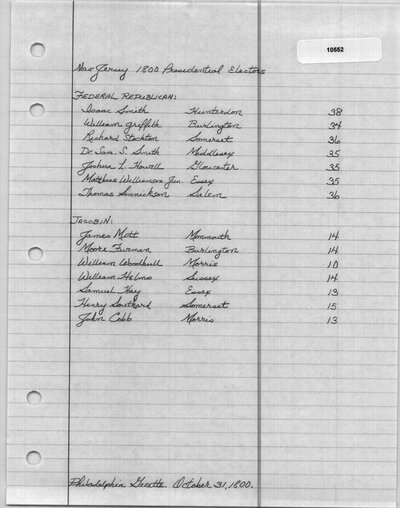 10552
New Jersey 1800 Presidential Electors
FEDERAL REPUBLICAN:
Isaac Smith Hunterdon 38
William Griffith Burlington 34
Richard Stockton Somerset 36
Dr. Sam. S. Smith Middlesex 35
Joshua L. Howell Gloucester 35
Matthias Williamson, Jun. Essex 35
Thomas Sinnickson Salem 36
JACOBIN:
James Mott Monmouth 14
Moore Furman Burlington 14
William Woodhull Morris 10
William Helms Sussex 14
Samuel Hay Essex 13
Henry Southard Somerset 15
John Cobb Morris 13
Philadelphia Gazette. October 31, 1800.